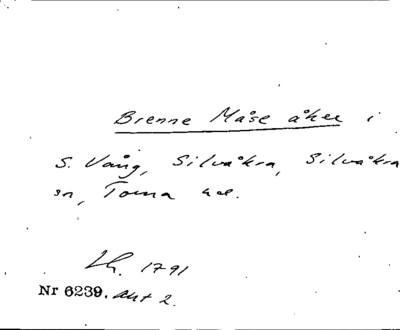 Brenne Måse åker i
S. Vång, Silvåkra, Silvåkra
sn, Torna hd.
Lh. 1791
Nr 6239. Akt 2.